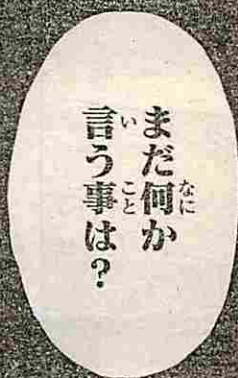 まだ何か
言う事は？